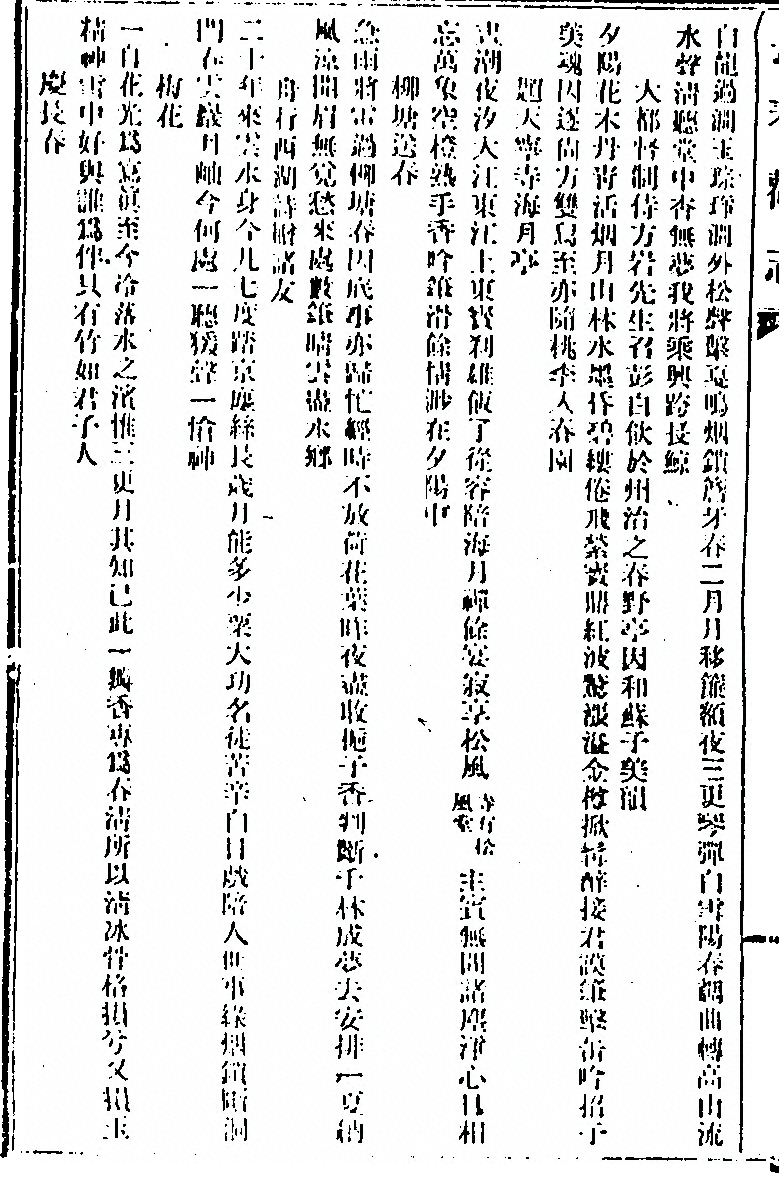 白龍過澗玉琮琤澗外松聲繫戛鳴烟鎖簷牙春二月月移簾額夜三更琴彈白雪陽春調曲轉高山流
水聲清聽堂中杳無夢我將乘興跨長鯨
大都督制侍方岩先生召彭自飲於州治之春野亭因和蘇子美韻
夕陽花木丹青活烟月山林水墨昏碧縷倦飛縈寶鼎紅波驚漲溢金樽掀髯醉接君謨筆擊缶吟招子
美魂因逐尚方雙舄至亦隨桃李入春園
題天寧寺海月亭
晁潮夜汐大江東江上東賓刹雄飯了從容陪海月禪餘宴寂享松風寺有松風堂主賓無間諸塵淨心目相
忘萬象空橙熟手香吟錐滑餘情渺在夕陽中
柳塘送春
急雨將雷過柳塘春因底事亦歸忙經時不放荷花葉昨夜盡收梔子香判斷千林成夢去安排一夏納
風涼開眉無覓愁來處數錐晴雲盡水鄉
舟行西湖詩酬諸友
二十年來雲水身今凡七度踏京塵絲長歲月能多少粟大功名徒苦辛白日戲陪人世事綠烟鎖斷洞
門春雲巖月岫今何處一聽猨聲一愴神
梅花
一白花光爲寫真至今冷落水之濱惟三更月其知己此一瓣香專爲春清所以清冰骨格損兮又損玉
精神雪中好與誰爲伴只有竹如君子人
慶長春